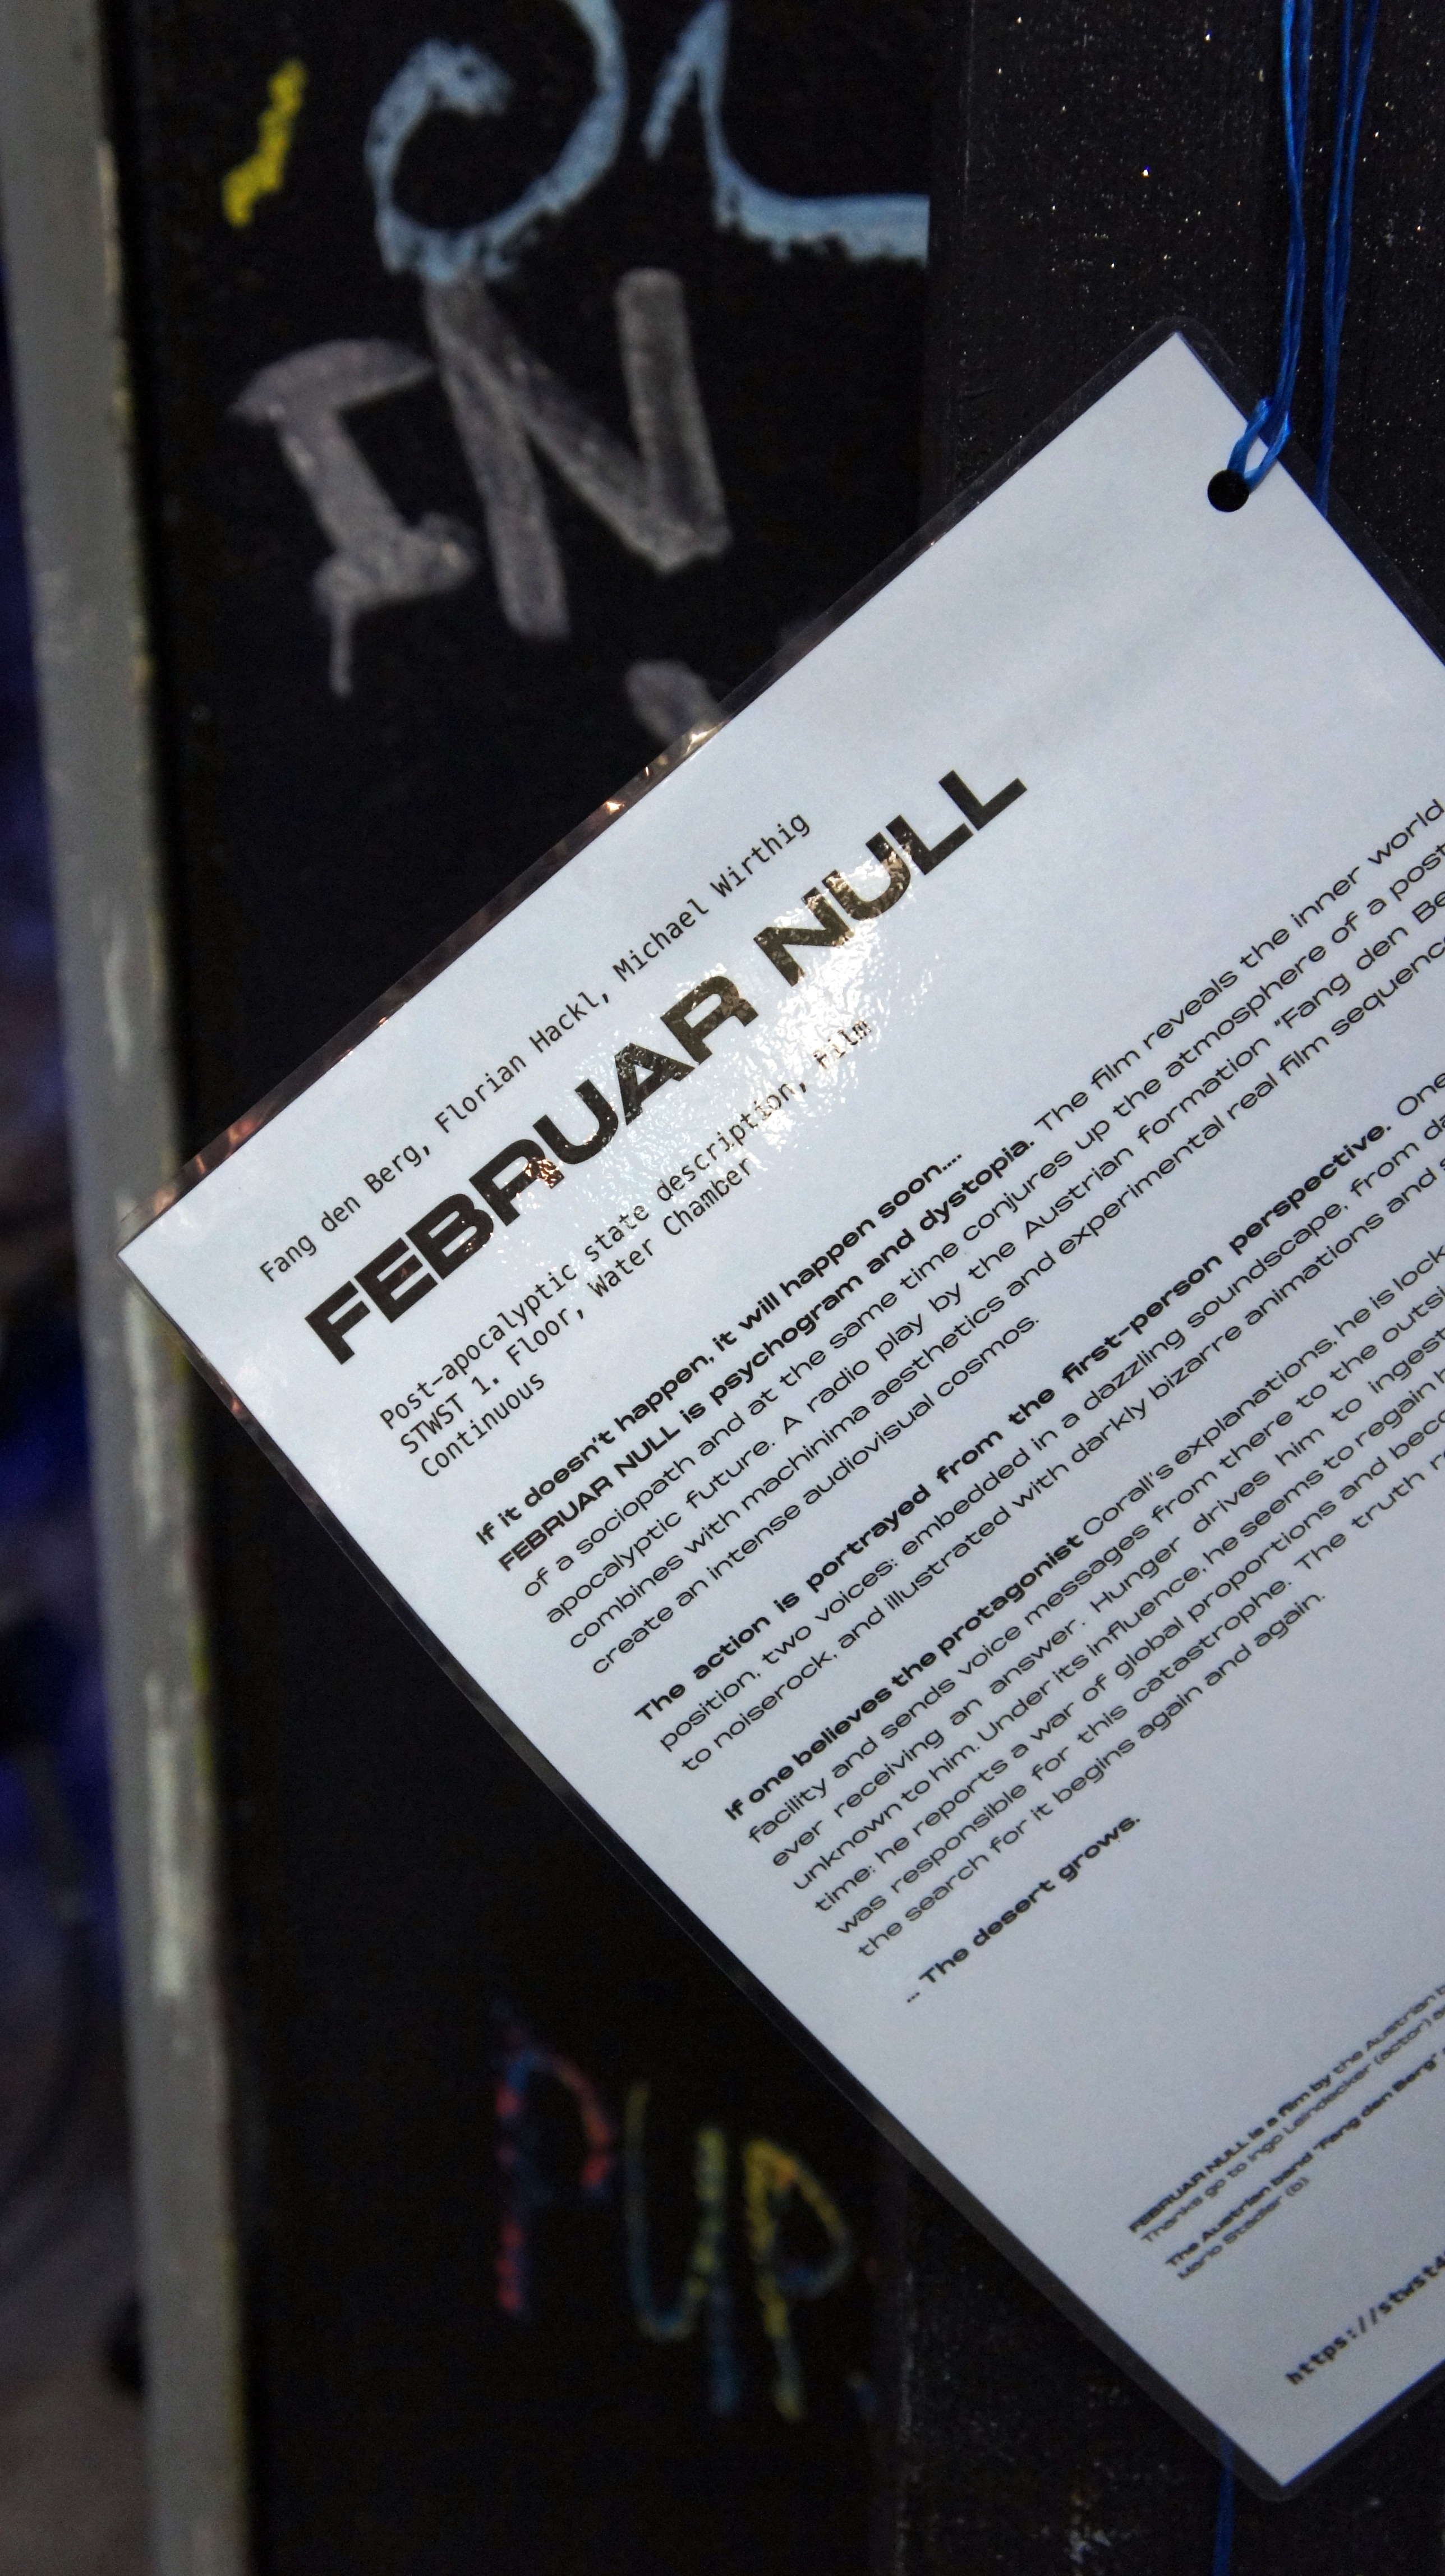 IN
Fang den Berg, Florian Hackl, Michael Wirthig
FEBRUAR NULL
Post-apocalyptic state description, Film
STWST 1. Floor, Water Chamber
Continuous
If it doesn't happen, it will happen soon....
FEBRUAR NULL is psychogram and dystopia. The film reveals the inner world
of a sociopath and at the same time conjures up the atmosphere of a post
apocalyptic future. A radio play by the Austrian formation "Fang den Be
combines with machinima aesthetics and experimental real film sequenc
create an intense audiovisual cosmos.
The action is portrayed from the first-person perspective. One
position, two voices: embedded in a dazzling soundscape, from da
to noiserock, and illustrated with darkly bizarre animations and s
If one believes the protagonist Corall's explanations, he is lock
facility and sends voice messages from there to the outsi
ever receiving an answer. Hunger drives him to ingest
unknown to him. Under its influence, he seems to regain h
time: he reports a war of global proportions and beco
was responsible for this catastrophe. The truth r
the search for it begins again and again.
... The desert grows.
FEBRUAR NULL is a film by the Austrian b
Thanks go to Ingo Leindecker (actor) a
The Austrian band "Fang den Berg"
Mario Stadler (b).
https://stwst4
PUP